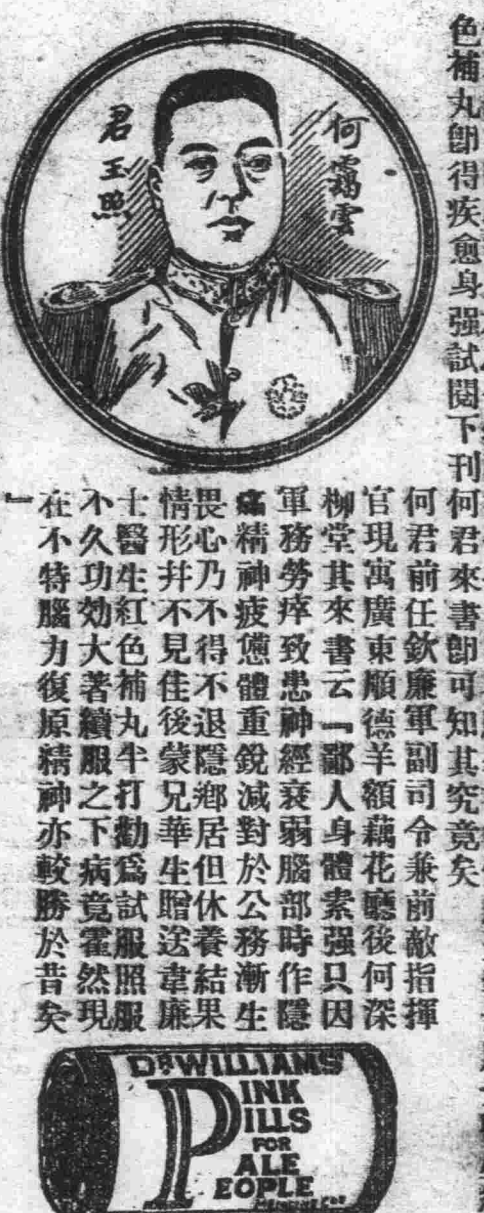 色補丸即得疾愈身强試閱下刊何君來書即可知其究竟矣
何靄雲
君玉照
何君前任欽廉軍副司令兼前敵指揮
官現寓廣東順德羊額藕花廳後何深
柳堂其來書云『鄙人身體素强只因
軍務勞瘁致患神經衰弱腦部時作隱
痛精神疲憊體重銳減對於公務漸生
畏心乃不得不退隱鄉居但休養結果
情形幷不見佳後蒙兄華生贈送韋廉
士醫生紅色補丸半打勸爲試服照服
不久功効大著續服之下病竟霍然現
在不特腦力復原精神亦較勝於昔矣
』
DR WILLIAMS'
PINK
PILLS
FOR
PALE
PEOPLE